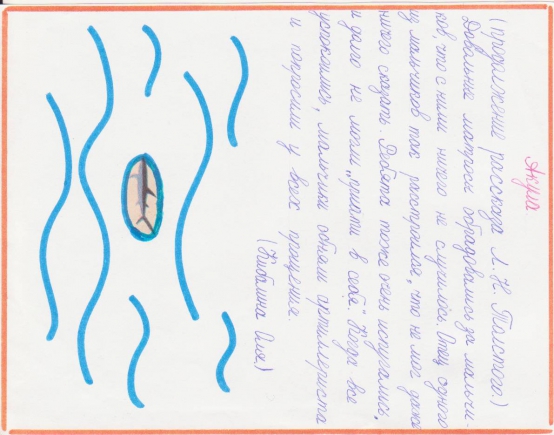 Акула
(продолжение рассказа Л. Н. Толстого.)
Довольные матросы обрадовались за мальчи-
ков, что с ними ничего не случилось. Отец одного
из мальчиков так расстроился, что не мог даже
ничего сказать. Ребята тоже очень испугались,
и долго не могли „прийти в себя". Когда все
успокоились, мальчики обняли артиллериста
и попросили у всех прощения.
(Кибалина Оля)